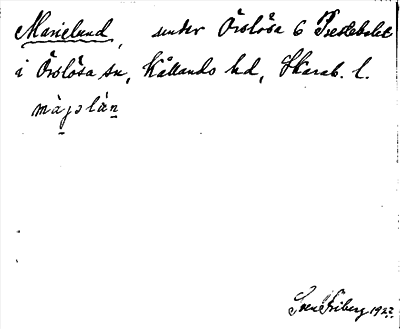 Marielund, under Örslösa 6 Prestebolet
i Örslösa sn, Kållands hd, Skarab. l.
màjəlàn
Sven Friberg 1923